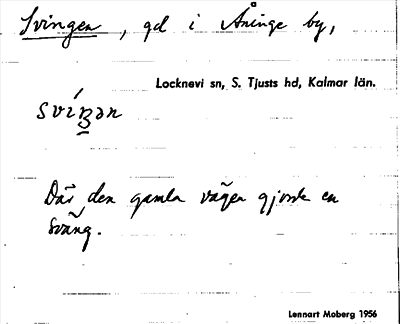 Svingen, gd i Åninge by,
Locknevi sn, S. Tjusts hd, Kalmar län.
svíŋən
Där den gamla vägen gjorde en
sväng.
Lennart Moberg 1956